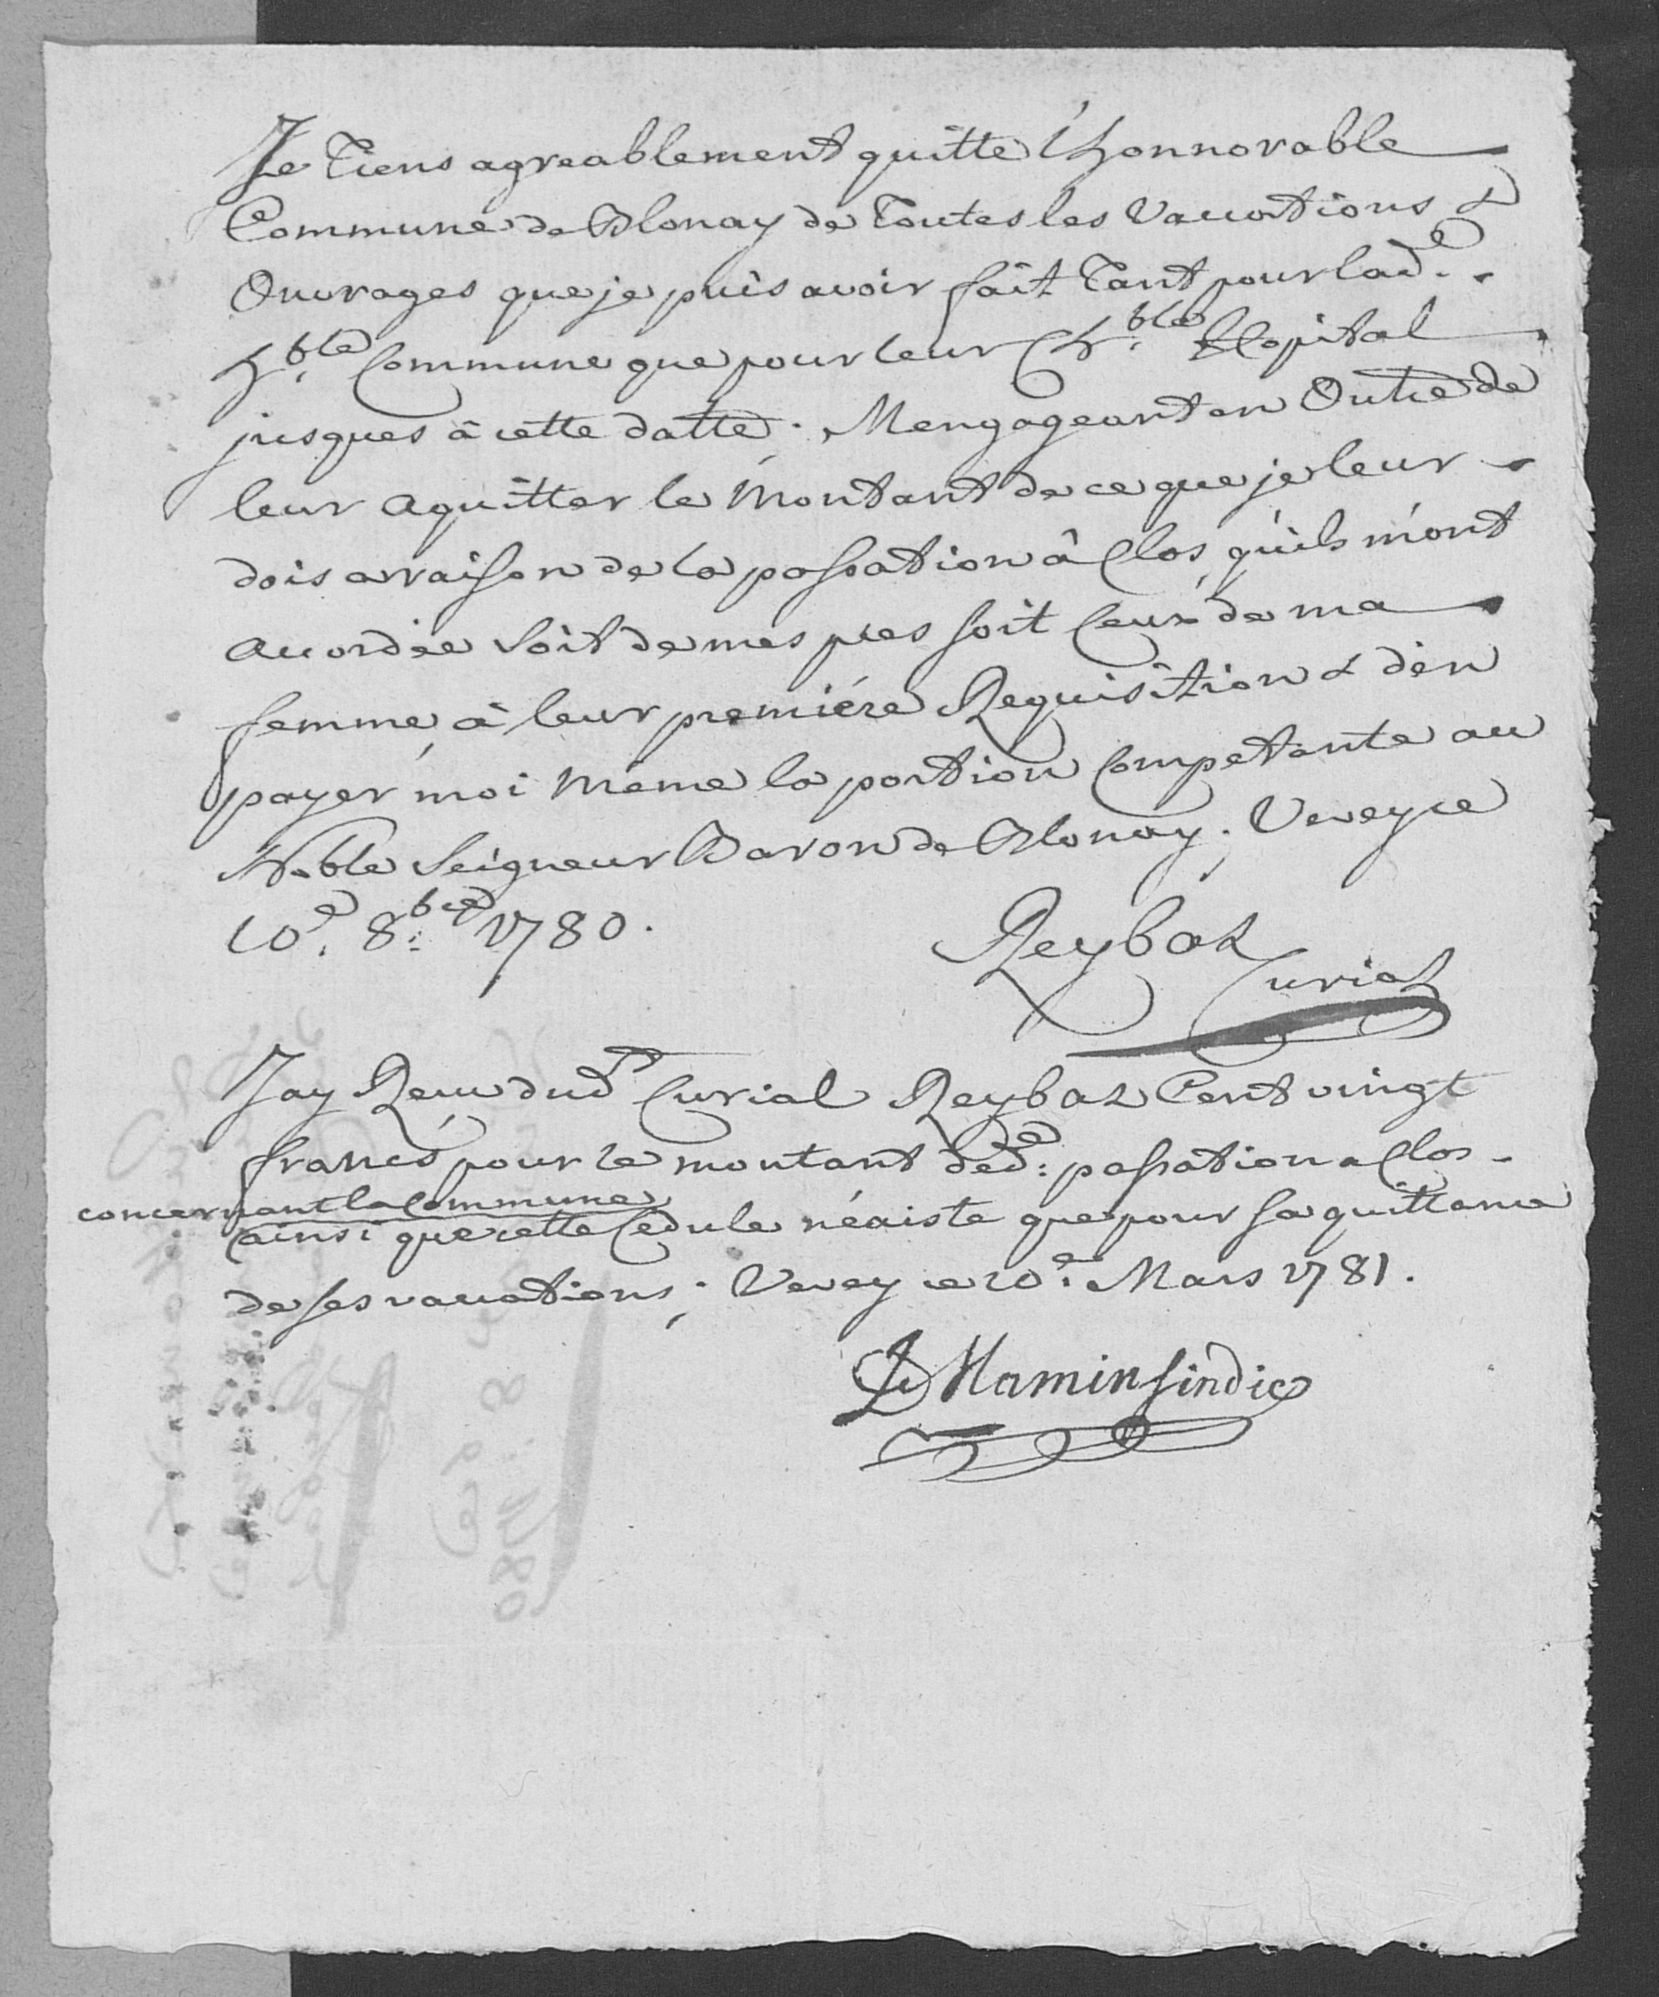 Je Tiens agreablement quitte l'honnorable
Commune de Blonay de Toutes les Vaccations &
Ouvrages que je puis avoir fait Tant pour lad.e
h.ble Commune que pour leur h.ble Hopital
jusques à cette datte. M'engageant en Outre de
leur aquitter le Montant de ce que je leur
dois a raison de la passation à Clos qu'ils m'ont
accordée soit de mes pies soit Ceux de ma
femme à leur premiére Requisition & d'en
payer moi même la portion Competante au
Noble Seigneur Baron de Blonay. Vevey ce
10.e 8.bre 1780.
Reybaz
Curial
Jay Reçu dud.t Curial Reybaz Cent vingt
francs pour le montant ded.e: passation a Clos
concernant la Commune
ainsi que cette Cedule n'éxiste que pour sa quittance
de ses vacations; Vevey ce 20.e Mars 1781.
Mamin sindic